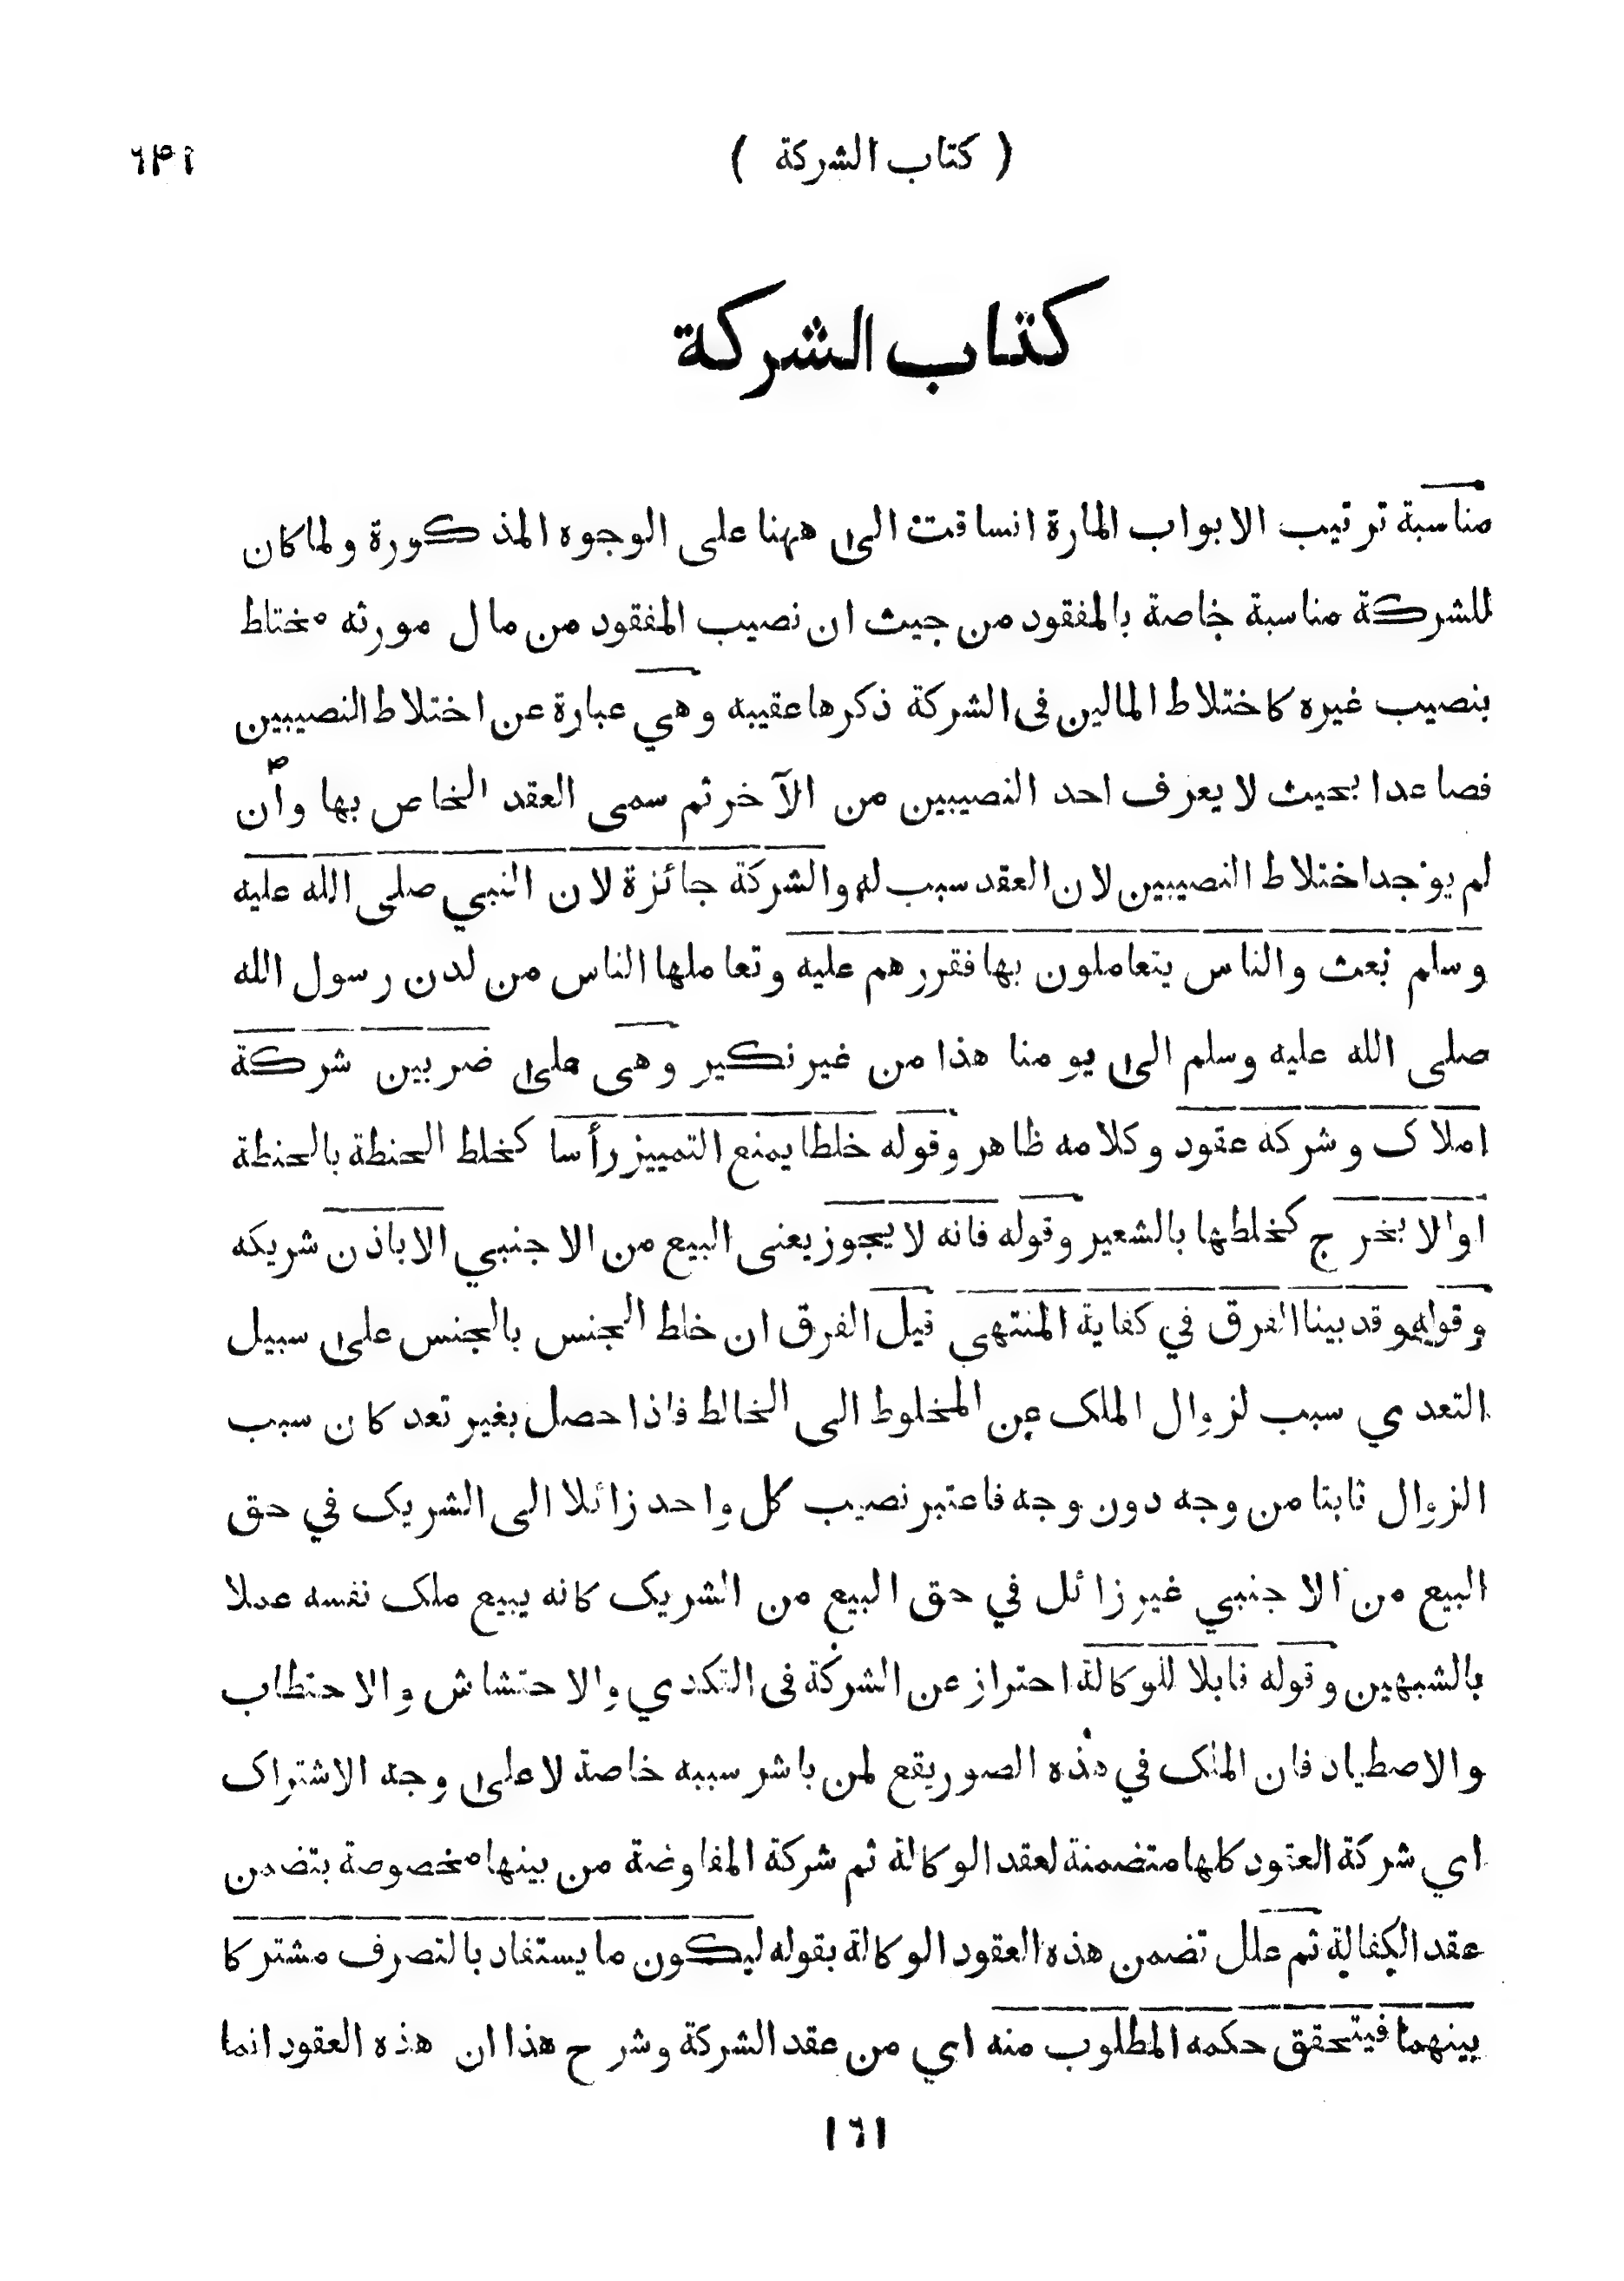 ( كتاب الشركة ) ٦٣١
كتاب الشركة
مناسبة ترتيب الابواب المارة انساقت الى ههنا على الوجوه المذكورة ولما كان
للشركة مناسبة خاصة بالمفقود من حيث ان نصيب المفقود من مال مورثه مختلط
بنصيب غيره كاختلاط المالين فى الشركة ذكرها عقيبه وهي عبارة عن اختلاط النصيبين
فصاعدا بحيث لا يعرف احد النصيبين من الآخر ثم سمى العقد الخاص بها وان
لم يوجد اختلاط النصيبين لان العقد سبب له والشركة جائزة لان النبي صلى الله عليه
وسلم بعث والناس يتعاملون بها فقررهم عليه وتعاملها الناس من لدن رسول الله
صلى الله عليه وسلم الى يومنا هذا من غير نكير وهى على ضربين شركة
املاك وشركه عقود وكلامه ظاهر وقوله خلطا يمنع التمييز رأسا كخلط الحنطة بالحنطة
او الا بخرج كخلطها بالشعير وقوله فانه لا يجوز يعنى البيع من الاجنبي الا باذن شريكه
وقوله وقد بينا الفرق في كفاية المنتهى قيل الفرق ان خلط الجنس بالجنس على سبيل
التعدي سبب لزوال الملك عن المخلوط الى الخالط فاذا حصل بغير تعد كان سبب
الزوال ثابتا من وجه دون وجه فاعتبر نصيب كل واحد زائلا الى الشريك في حق
البيع من الاجنبي غير زائل في حق البيع من الشريك كانه يبيع ملك نفسه عملا
بالشبهين وقوله قابلا للوكالة احتراز عن الشركة فى التكدي والاحتشاش والاحتطاب
والاصطياد فان الملك في هذه الصور يقع لمن باشر سببه خاصة لا على وجه الاشتراك
اي شركة العقود كلها متضمنة لعقد الوكالة ثم شركة المفاوضة من بينها مخصوصة بتضمن
عقد الكفالة ثم علل تضمن هذه العقود الوكالة بقوله ليكون ما يستفاد بالتصرف مشتركا
بينهما فيتحقق حكمه المطلوب منه اي من عقد الشركة وشرح هذا ان هذه العقود انما
١٦١